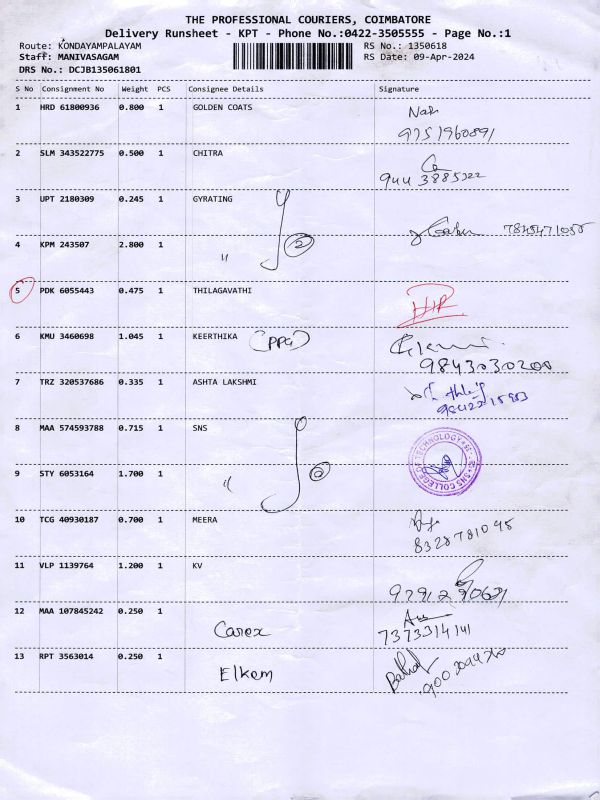 THE PROFESSIONAL COURIERS, COIMBATORE
Delivery Runsheet - KPT - Phone No.:0422-3505555 - Page No.:1
Route: KONDAYAMPALAYAM RS No.: 1350618
Staff: MANIVASAGAM RS Date: 09-Apr-2024
DRS No.: DCJB135061801
S No Consignment No Weight PCS Consignee Details Signature
1 HRD 61800936 0.800 1 GOLDEN COATS
9751960891
2 SLM 343522775 0.500 1 CHITRA
944 3885322
3 UPT 2180309 0.245 1 GYRATING
7845471055
4 KPM 243507 2.800 1 " 2
5 PDK 6055443 0.475 1 THILAGAVATHI
6 KMU 3460698 1.045 1 KEERTHIKA (PPG)
9843030200
7 TRZ 320537686 0.335 1 ASHTA LAKSHMI
8 MAA 574593788 0.715 1 SNS
SNS COLLEGE OF TECHNOLOGY
9 STY 6053164 1.700 1 "
10 TCG 40930187 0.700 1 MEERA
8328781045
11 VLP 1139764 1.200 1 KV
12 MAA 107845242 0.250 1 Carex
7373314141
13 RPT 3563014 0.250 1 Elkem